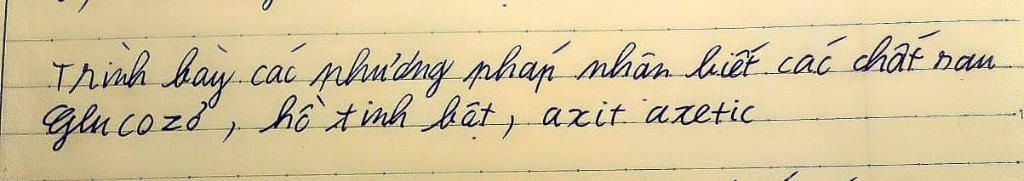 Trình bày các phương pháp nhân biết các chất sau
Glucozơ, hồ tinh bột, axit axetic